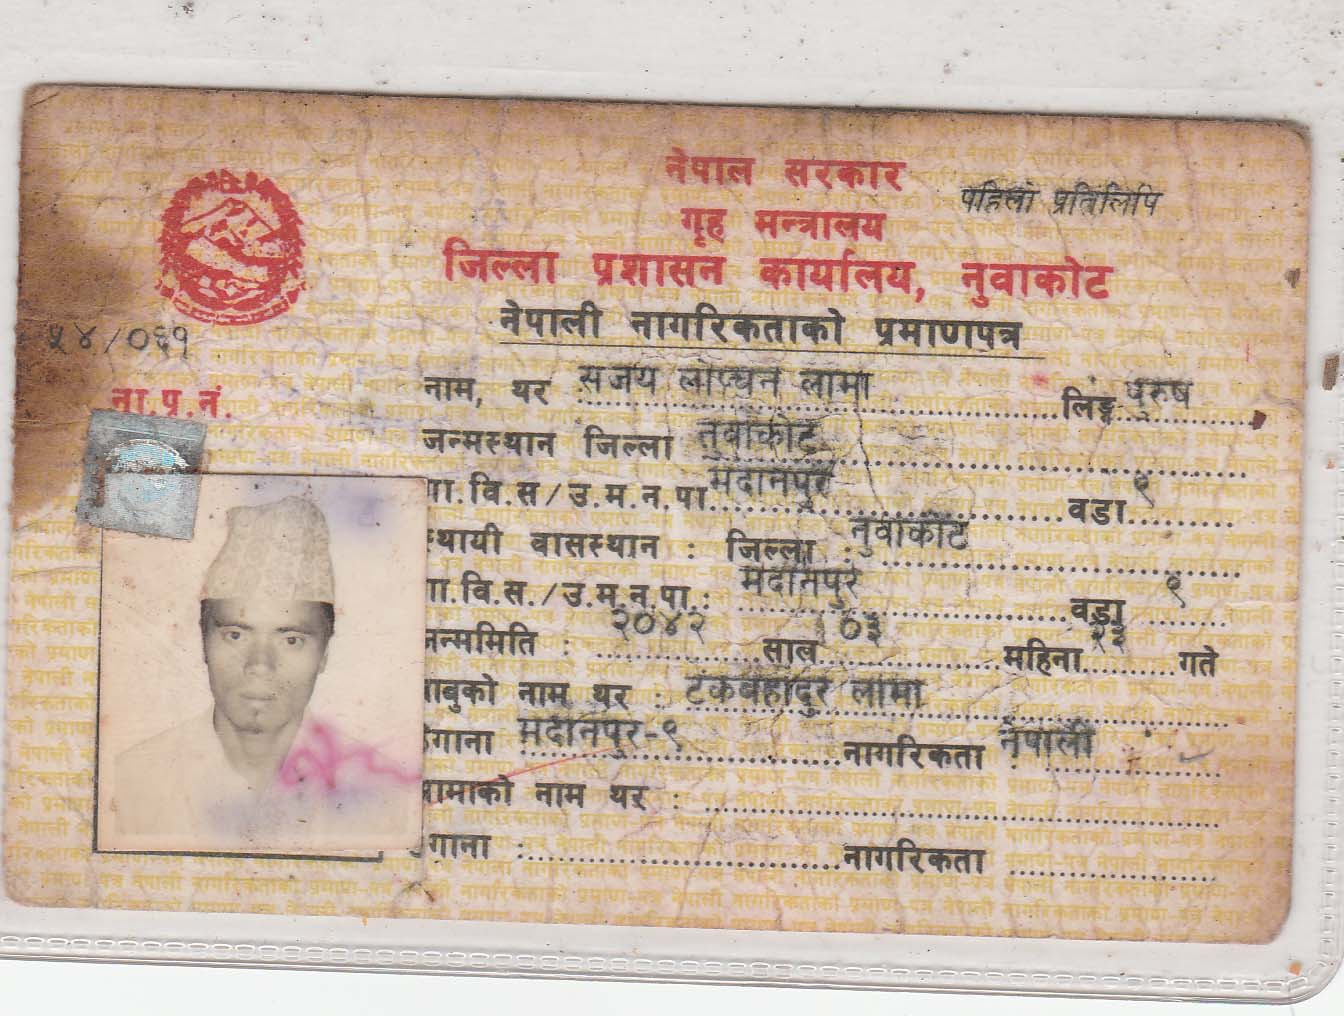 नेपाल सरकार
पहिलो प्रतिलिपि
गृह मन्त्रालय
जिल्ला प्रशासन कार्यालय, नुवाकोट
नेपाली नागरिकताको प्रमाणपत्र
५४/०६१
ना.प्र.नं.
नाम, थर सजय लाप्चन लामा लिङ्ग पुरुष
जन्मस्थान जिल्ला नुवाकोट
गा.वि.स/उ.म.न.पा. मदानपुर वडा ९
स्थायी वासस्थान : जिल्ला : नुवाकोट
गा.वि.स./उ.म.न.पा.: मदानपुर वडा ९
जन्ममिति : २०४२ साल ०३ महिना २३ गते
बाबुको नाम थर : टेकबहादुर लामा
ठेगाना मदानपुर-९ नागरिकता नेपाली
आमाको नाम थर :
ठेगाना : नागरिकता